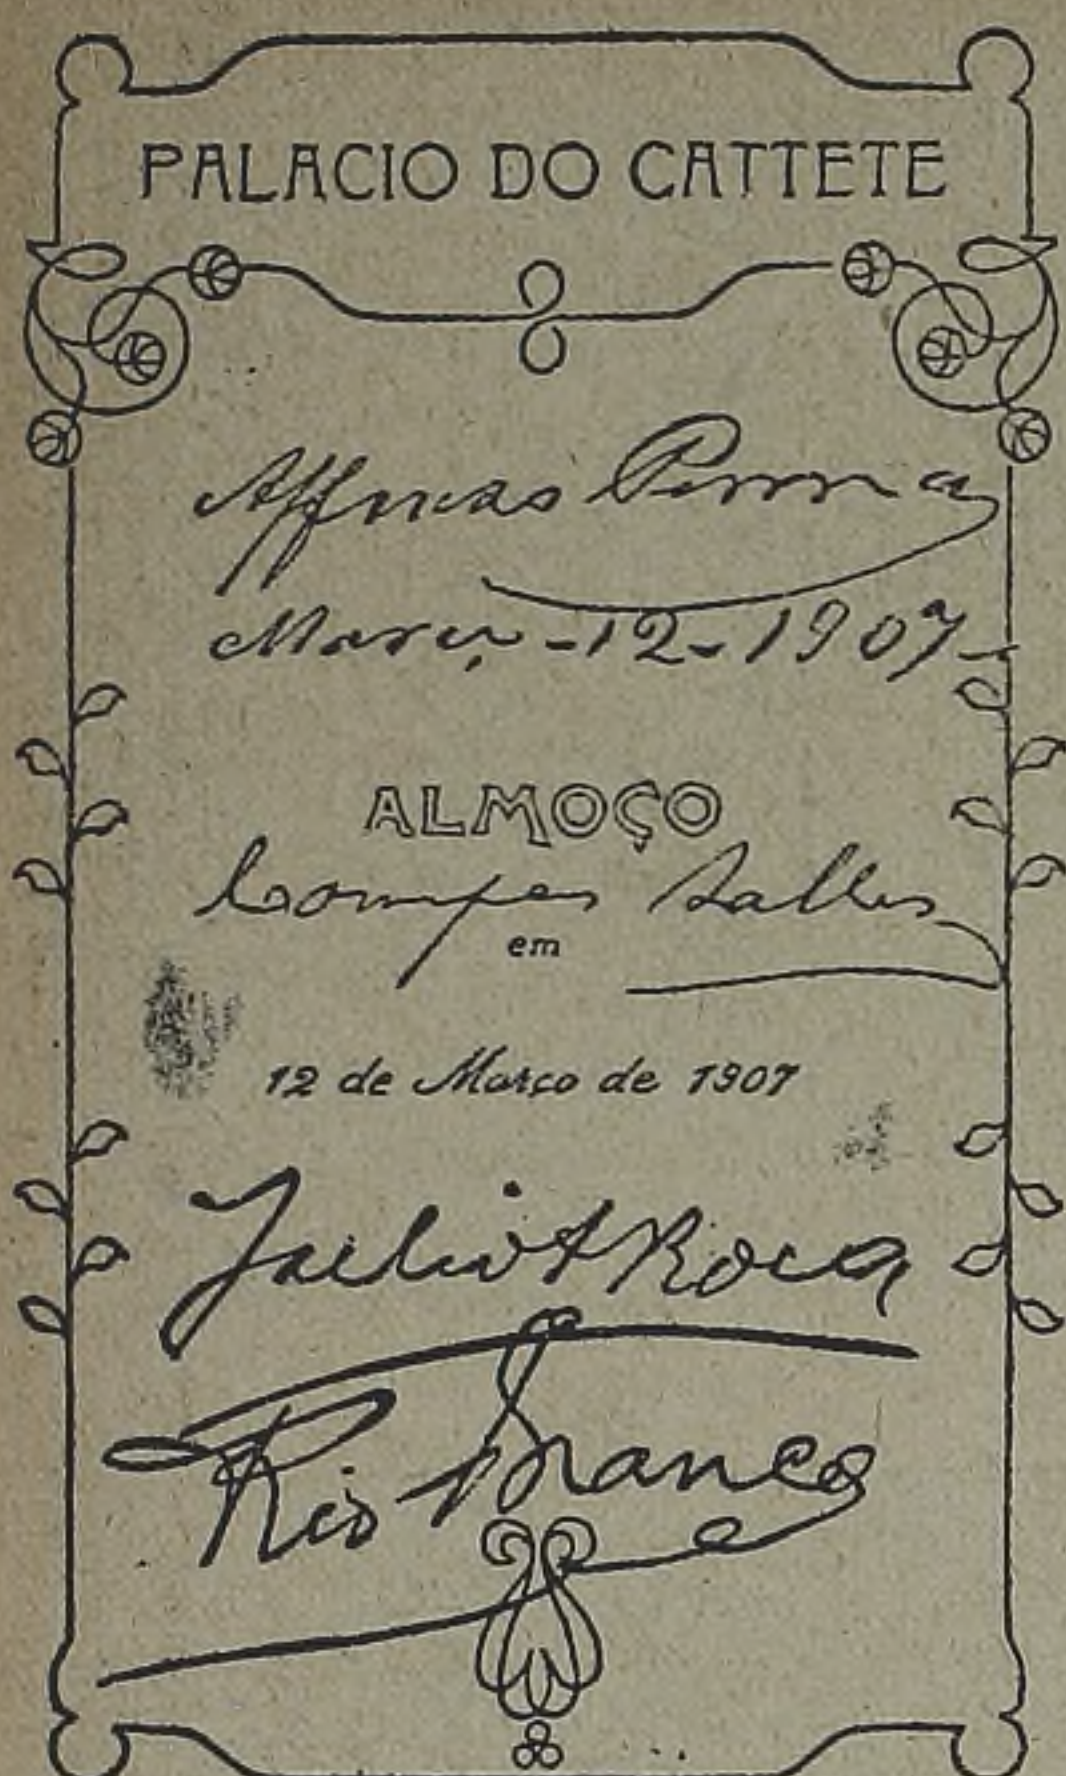 PALACIO DO CATTETE
Affonso Penna
Março - 12 - 1907 -
ALMOÇO
Campos Salles
em
12 de Março de 1907
Julio A Roca
Rio Branco